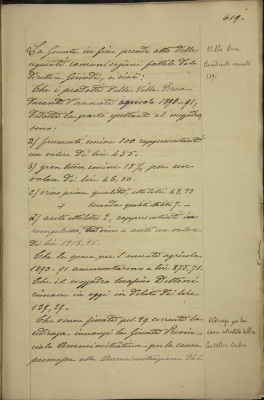 619.
La Giunta in fine prende atto delle
seguenti comunicazioni fattele dal
Direttore Girardi, e cioè:
Che i prodotti della Villa Brea
durante l'annata agricola 1890-91,
dedotta la parte spettante al mezzadro,
sono:
a) frumento emine 100 rappresentanti
un valore di lire 455.
b) gran turco emine 15 ½ per un
valore di lire 46,50.
c) vino prima qualità ettolitri 43,33
" seconda qualità ettolitri 7. –
d) aceto ettolitri 2, rappresentanti in
complesso, tra vino e aceto un valore
di lire 1218,75.
Che le spese per l'annata agricola
1890-91 ammontarono a lire 875,71.
Che il mezzadro Serafino
rimane in oggi in debito di lire
139,29.
Che venne fissata pel 29 corrente la
udienza innanzi la Giunta Provin-
ciale Amministrativa per la causa
promossa alla Amministrazione dal
Villa Brea
Rendiconto annata
1891
Udienza per la
causa intentata dalla